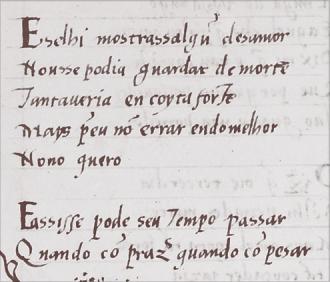 Eselhi mostrassalgũ desamor
Nousse podia guardar de morte
Tantaveria en coyta forte
Mays peu nō errar endomelhor
Nono quero
Eassisse pode seu Tempo passar
Quando cō praz quando cō pesar